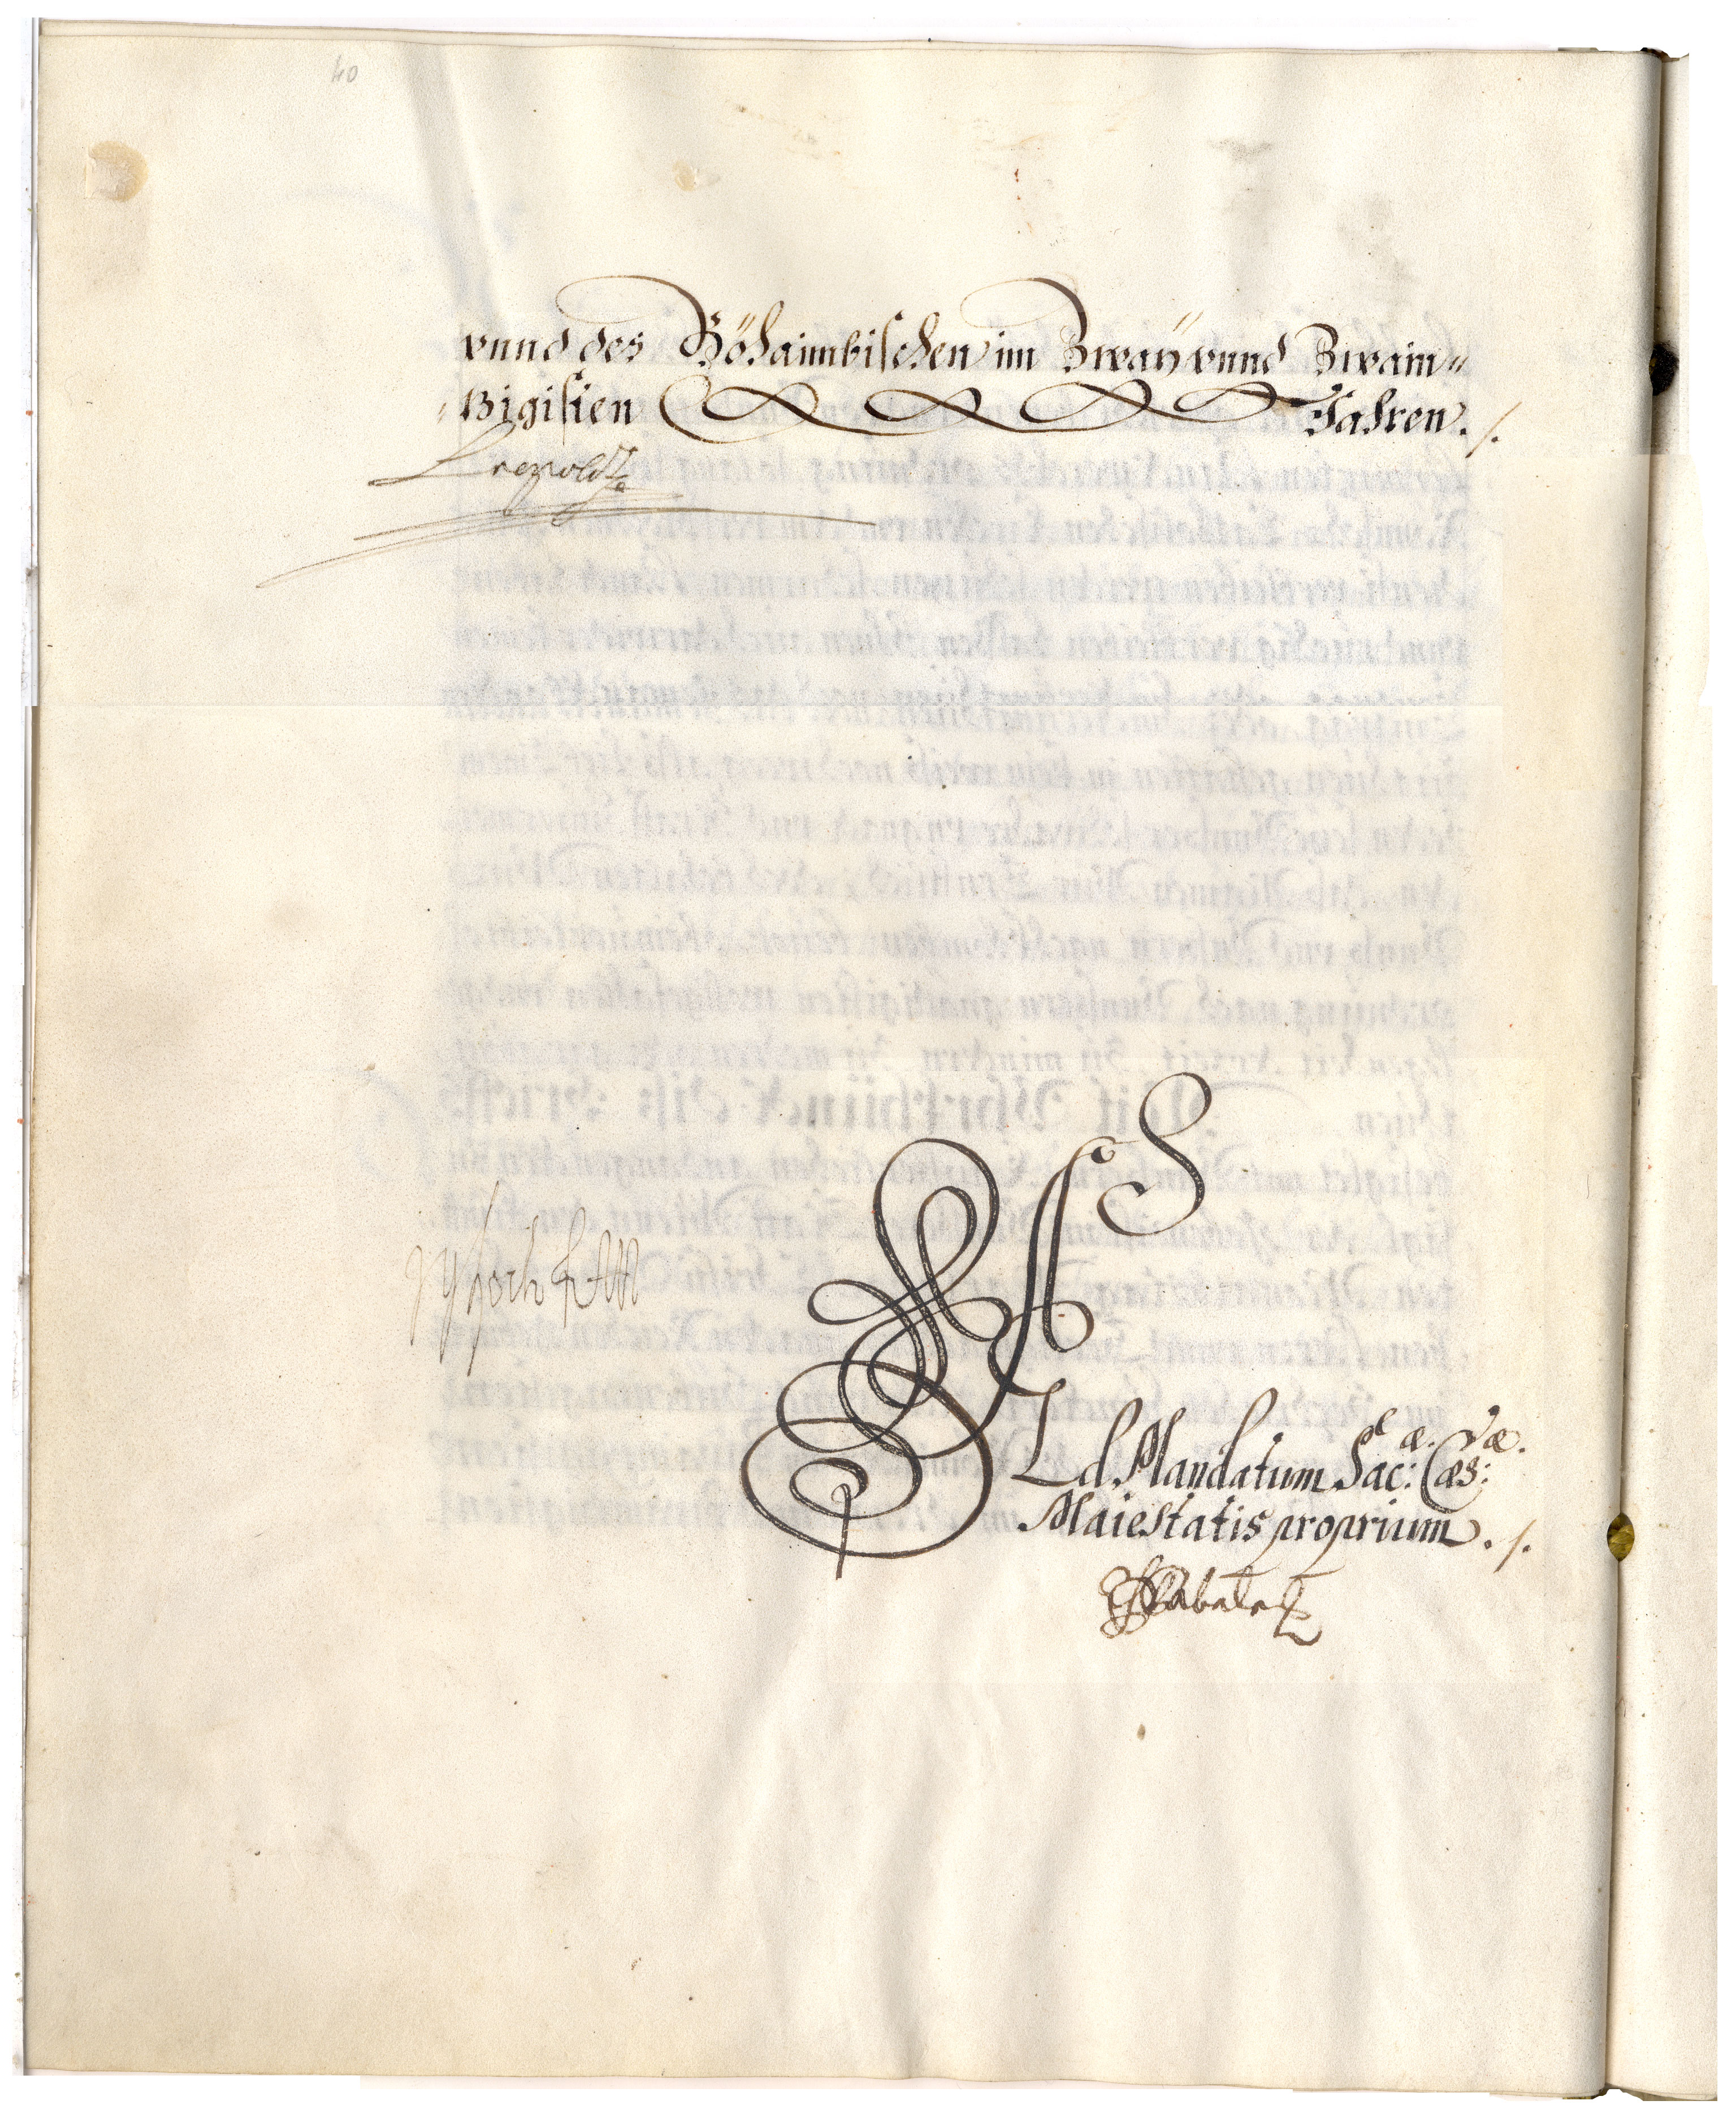 40
vnnd des Böhaimbischen im Zwaÿ vnnd Zwain„
„Zigisten Jahren ./.
Leopold
Ad Mandatum Sac:æ Cæs:ræ
Maiestatis proprium ./.